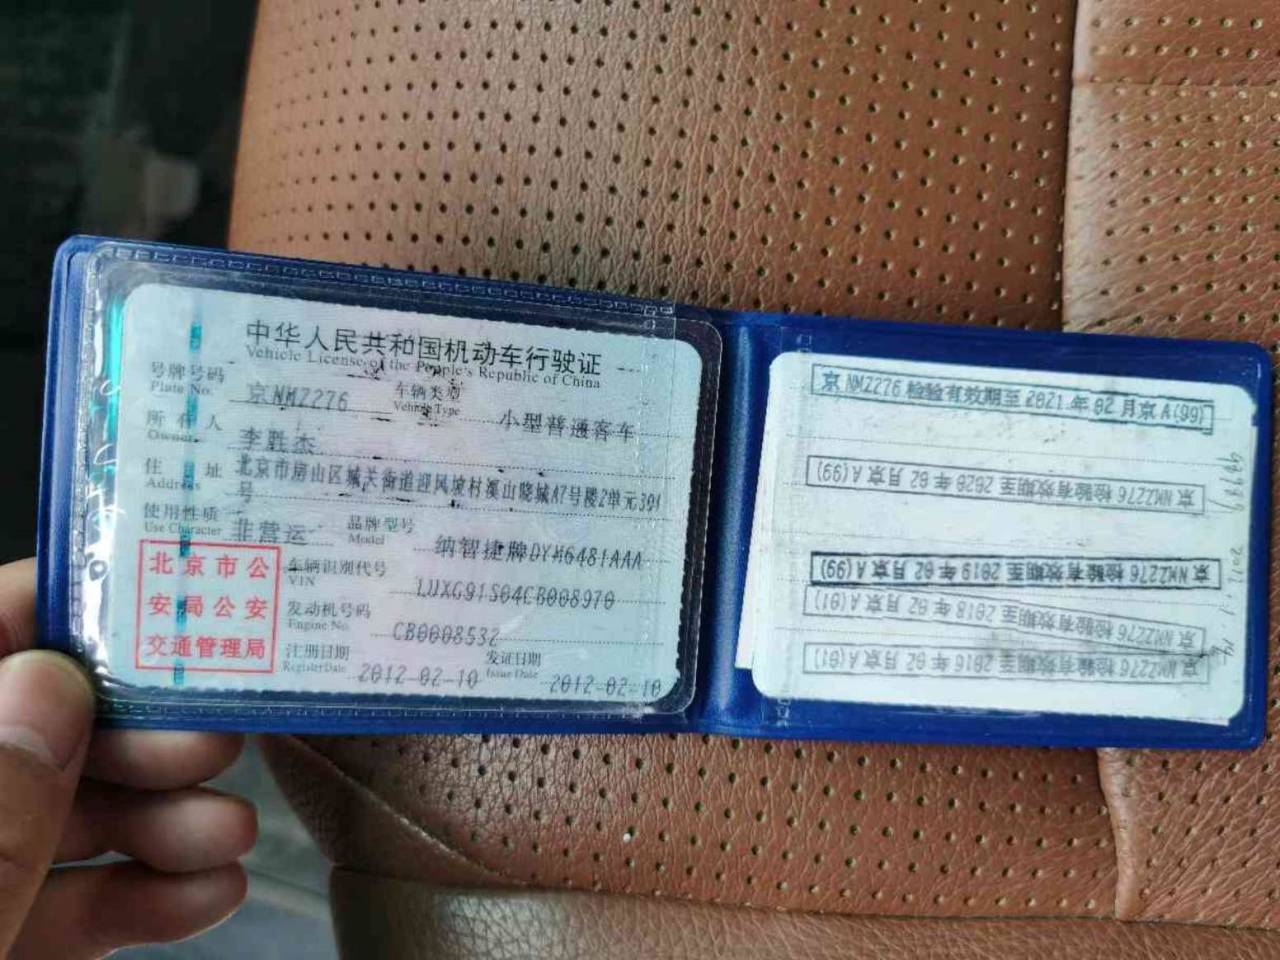 中华人民共和国机动车行驶证
Vehicle License of the People's Republic of China
号牌号码 京NMZ276 车辆类型 小型普通客车
Plate No. Vehicle Type
所有人 李胜杰
Owner
住址 北京市房山区城关街道迎风坡村溪山晓城A7号楼2单元301
Address 号
使用性质 非营运 品牌型号 纳智捷牌DYM6481AAA
Use Character Model
北京市公
安局公安
交通管理局
车辆识别代号 LUXG91S04CB008970
VIN
发动机号码 CB0008532
Engine No.
注册日期 2012-02-10 发证日期 2012-02-10
Register Date Issue Date
京NMZ276 检验有效期至2021年02月京A(99)
京NMZ276 检验有效期至2020年02月京A(99)
京NMZ276 检验有效期至2019年02月京A(99)
京NMZ276 检验有效期至2018年02月京A(01)
京NMZ276 检验有效期至2016年02月京A(01)